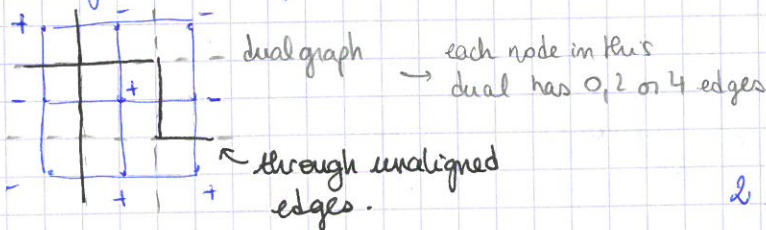 + - -
- dual graph → each node in this
dual has 0, 2 or 4 edges
- + -
through unaligned
edges.
- + +
2